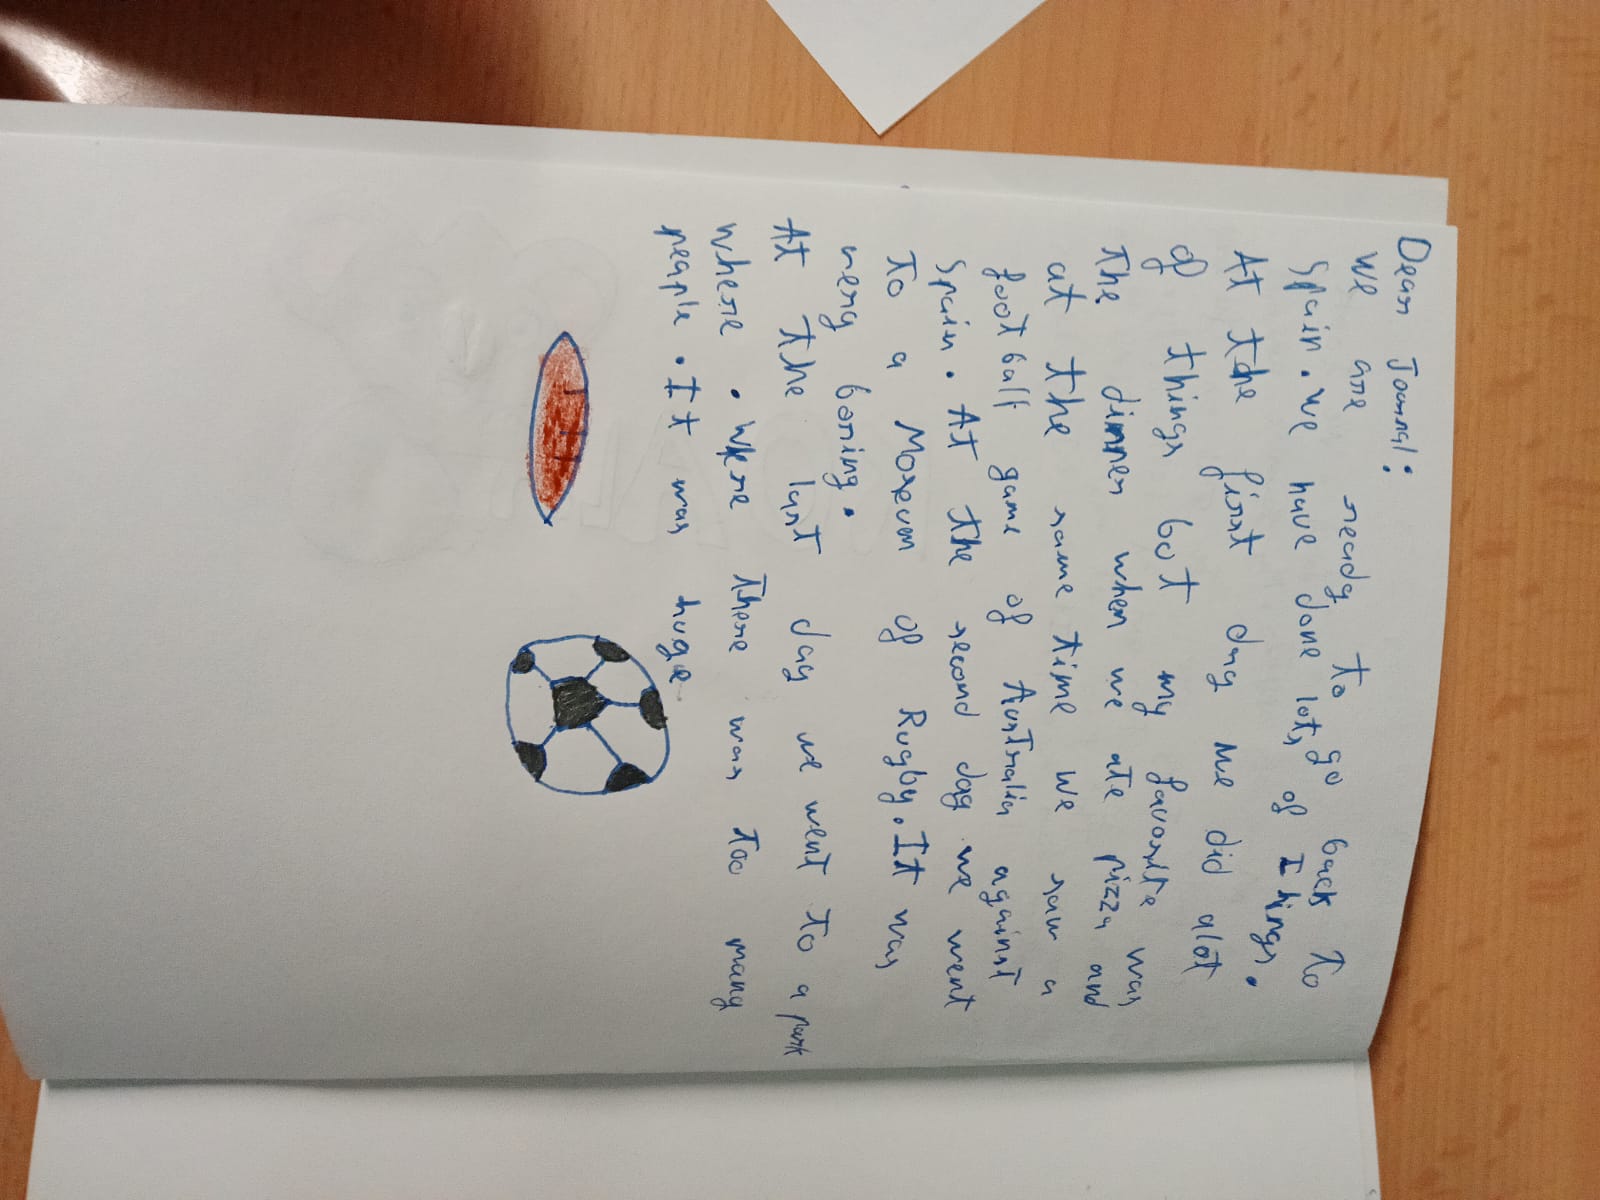 Dear Journal:
we are ready to go back to
Spain. we have done lots of things.
At the first day we did alot
of things bot my favorite was
the dinner when we ate pizza and
at the same time we saw a
football game of Australia against
Spain. At the second day we went
to a Moseum of Rugby. It was
very boring.
At the last day we went to a park
where. Where There was too many
people. It was huge